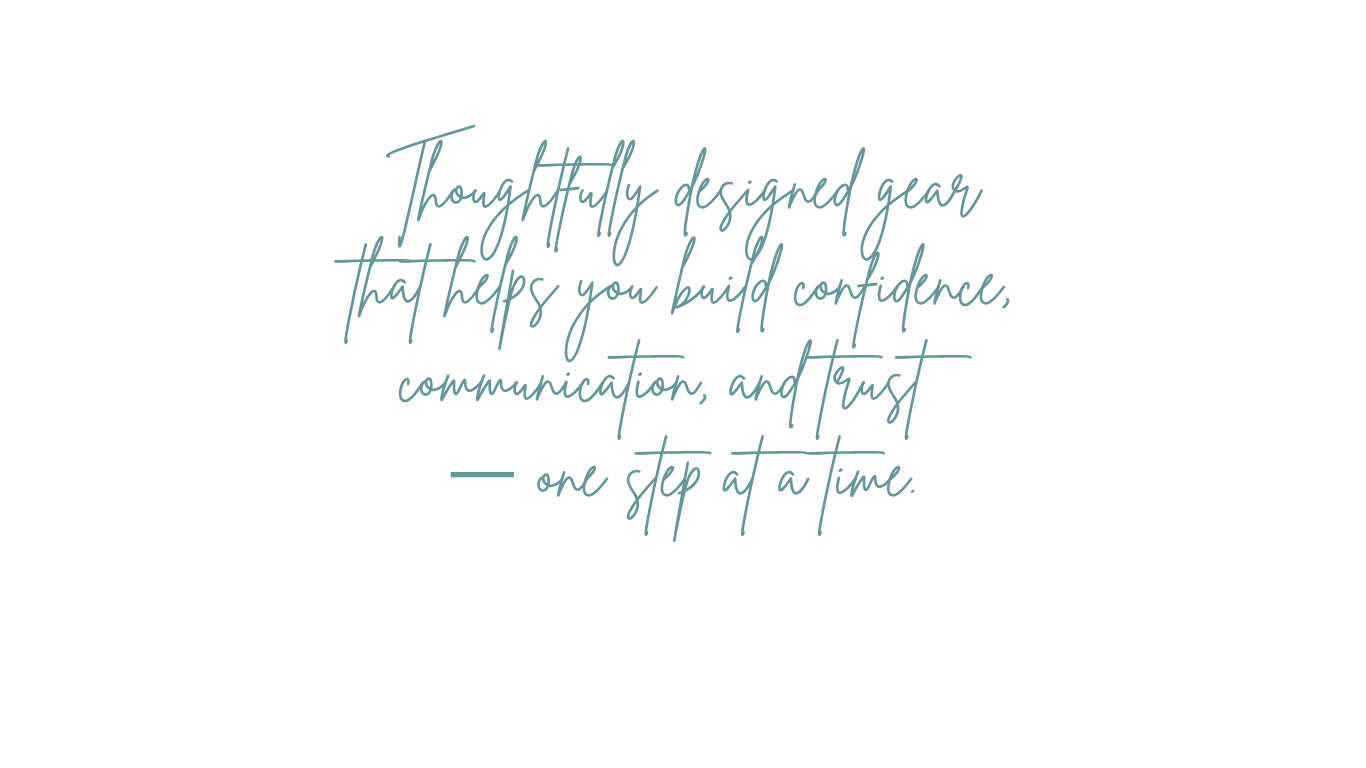 Thoughtfully designed gear
that helps you build confidence,
communication, and trust
— one step at a time.